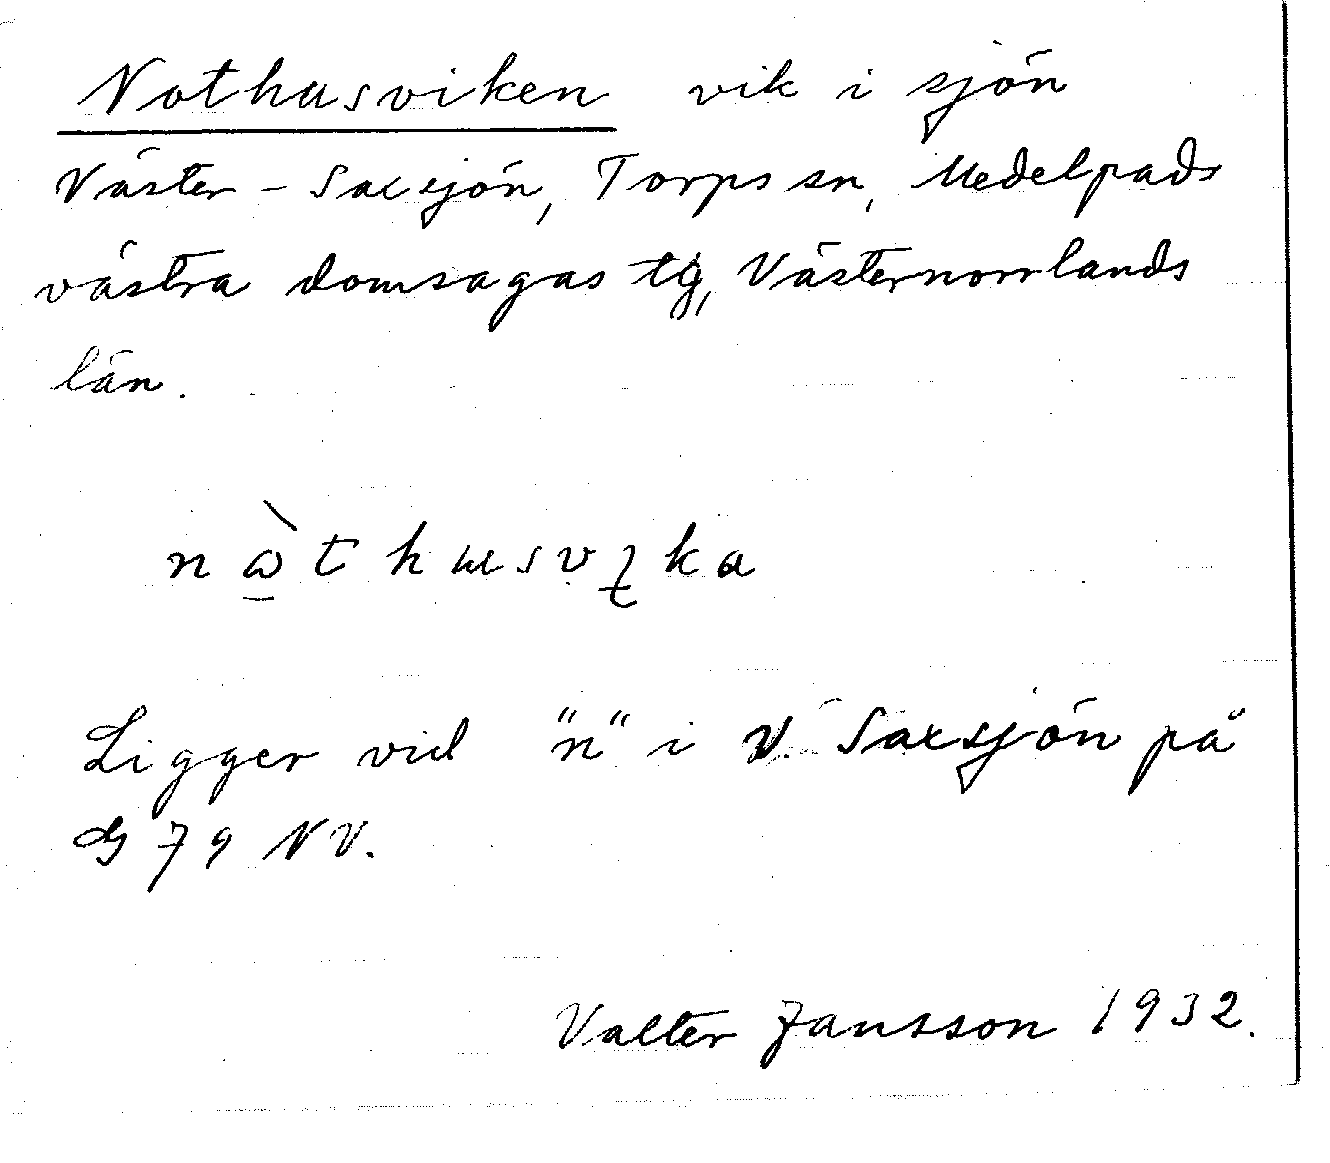 Nothusviken vik i sjön
Väster-Saxsjön, Torps sn, Medelpads
västra domsagas tg, Västernorrlands
län.
nὼ̱thusvįka
Ligger vid "n" i V. Saxsjön på
G 79 NV.
Valter Jansson 1932.